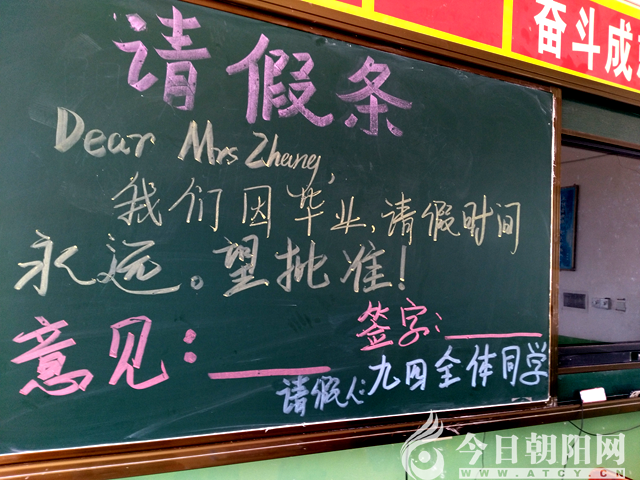 奋斗成
请假条
Dear Mrs Zhang,
我们因毕业,请假时间
永远。望批准!
意见:
签字:
请假人:九四全体同学
今日朝阳网
WWW.ATCY.CN